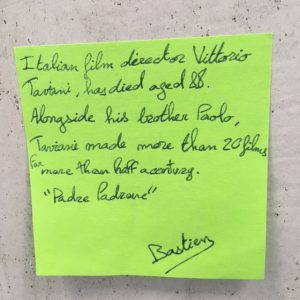 Italian film director Vittorio
Taviani, has died aged 88.
Alongside his brother Paolo,
Taviani made more than 20 films
for more than half a century.
"Padre Padrone"
Bastien